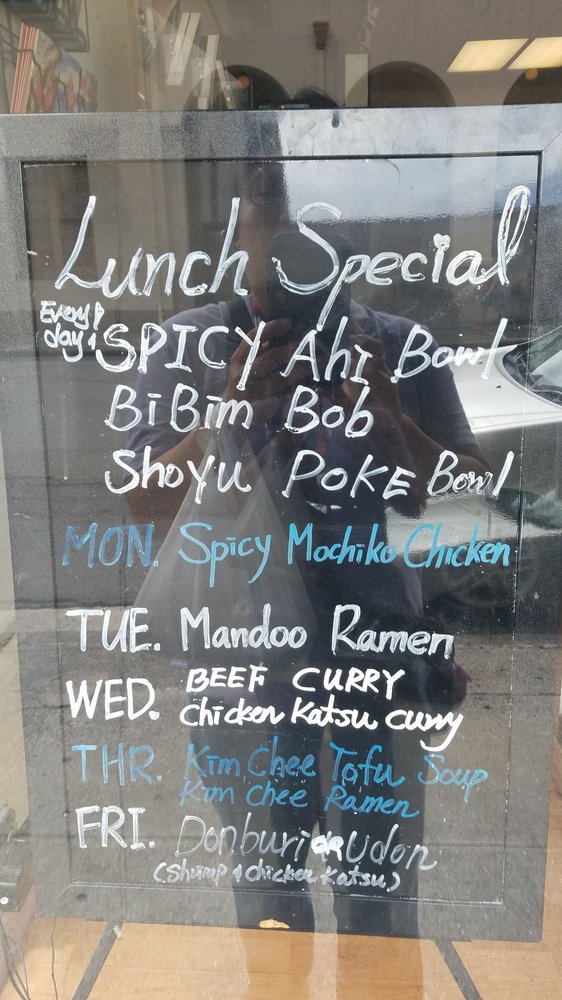 Lunch Special
Every
day SPICY Ahi Bowl
BiBim Bob
Shoyu POKE Bowl
MON. Spicy Mochiko Chicken
TUE. Mandoo Ramen
WED. BEEF CURRY
Chicken Katsu Curry
THR. Kim Chee Tofu Soup
Kim Chee Ramen
FRI. Donburi or Udon
(Shrimp & chicken Katsu)